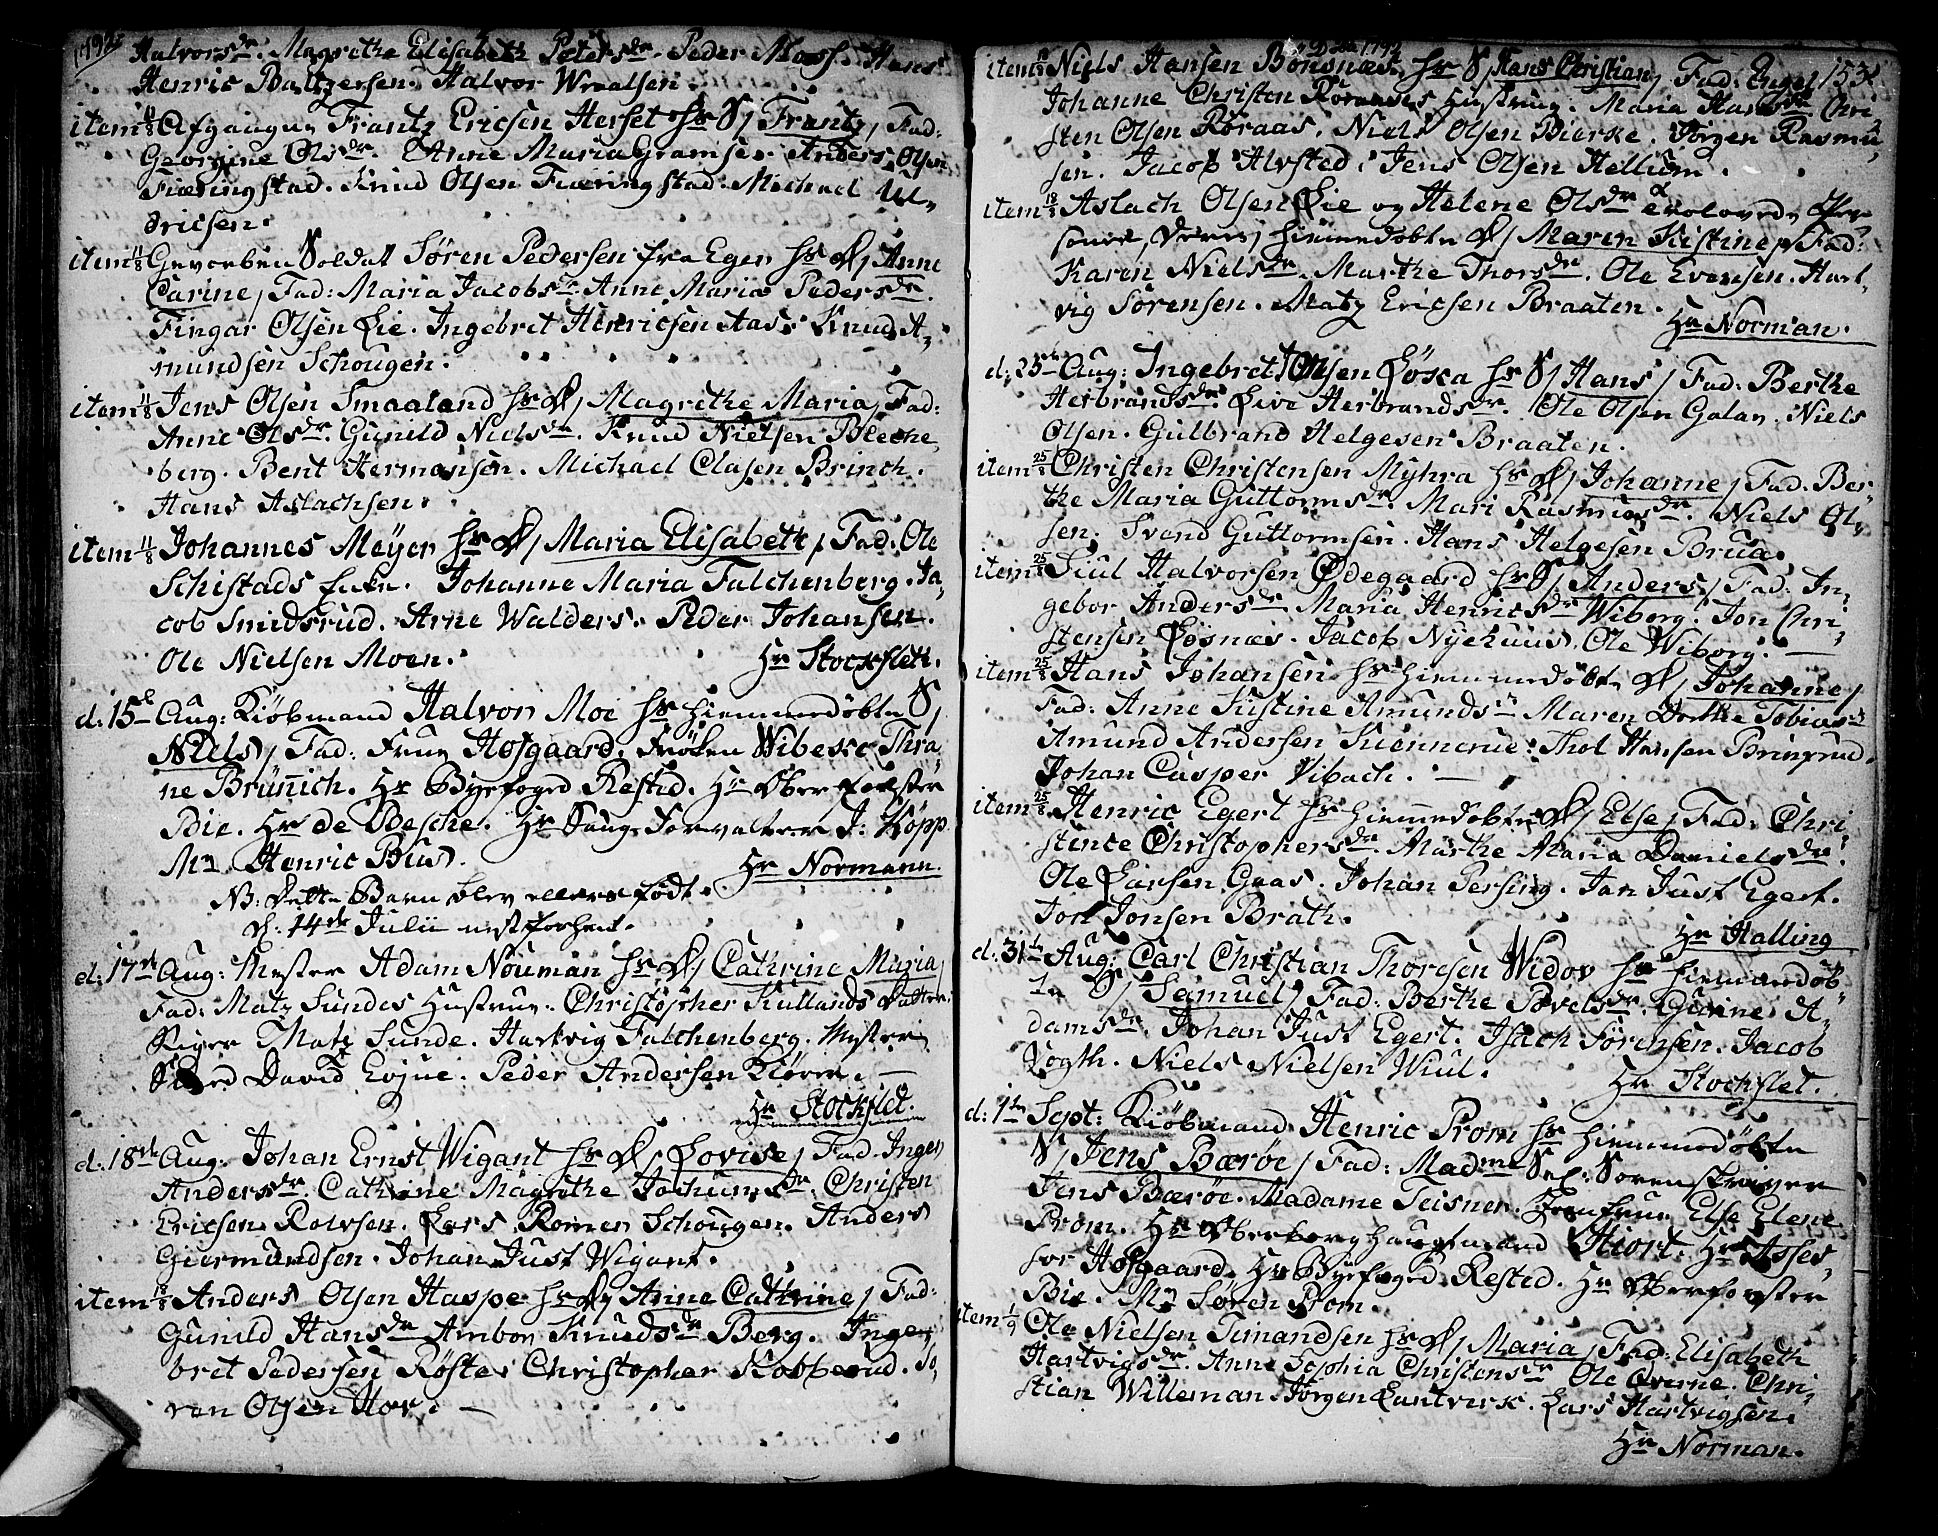 1792
Halvorsdr. Magrethe Elisabeth Petersdr. Peder Moss. Hans
Henric Baltzersen. Halvor Wraalsen.
item 11/8 Afgangne Frantz Ericsen Herset hs S/ Frantz/ Fad:
Georgine Olsdr. Anne Maria Gramser Anders Olsen
Fiæringstad. Knud Olsen Fiæringstad. Michael Ul-
dricsen.
item 11/8 Gevorben Soldat Sören Pedersen fra Eger hs D/ Anne
Carine/ Fad: Maria Jacobsdr. Anne Maria Pedersdr.
Fingar Olsen Lie. Ingebret Henricsen Aas. Knud A-
mundsen Schougen.
item 11/8 Jens Olsen Smaaland hs D/ Magrethe Maria/ Fad:
Anne Olsdr. Gunild Nielsdr. Knud Nielsen Bleche-
berg. Bent Hermansen. Michael Clasen Brinch.
Hans Aslachsen.
item 11/8 Johannes Meyer hs D/ Maria Elisabeth/ Fad: Ole
Schistads Enke. Johanne Maria Falchenberg. Ja-
cob Smidsrud. Arne Walders. Peder Johansen.
Ole Nielsen Moen. Hr Stockfleth.
d: 15de Aug: Kiöbmand Halvor Moe hs hiemmedöbte S/
Niels/ Fad: Frue Hofgaard. Fröken Wibeke Thra-
ne Brünich. Hr Byefoged Rested. Hr Oberforster
Bie. Hr de Besche. Hr Saugforvalter J: Köpp
Mr Henric Bus. Hr Normann.
NB: dette Barn blev ellers födt
d. 14de Julii nestforhen.
d: 17de Aug: Mester Adam Nouman hs D/ Cathrine Maria/
Fad: Matz Sundes Hustrue. Christopher Kullands Datter
Matz Sunde. Hartvig Falchenberg. Mester
David Evjue. Peder Andersen Klörn.
Hr Stockflet.
d: 18de Aug: Johan Ernst Wigant hs D/ Lovise/ Fad. Inger
Andersdr. Cathrine Magrethe Jochumsdr. Christen
Ericsen Rolvsen. Lars Romer Schougen. Anders
Giermundsen. Johan Just Wigant.
item 18/8 Anders Olsen Haspe hs D/ Anne Cathrine/ Fad:
Gunild Hansdr Ambor Knudsdr Berg. Inge-
bret Pedersen Röste. Christopher Kobberud. Sö-
ren Olsen Hov.
153.
item Niels Hansen Bönsnæs hs S/ Hans Christian/ Fad. Engel
Johanne Christen Röraases Hustrue. Maria Hansdr Chri-
sten Olsen Röraas. Niels Olsen Bierke. Jörgen Rasmu-
sen. Jacob Alvsted. Jens Olsen Hellum.
item 18/8 Aslach Olsen Lie og Helene Olsdr trolovede Per-
soner, deres hiemmedöbte D/ Maren Kistine/ Fad:
Karen Nielsdr. Marthe Thorsdr. Ole Evensen. Hart-
vig Sörensen. Matz Ericsen Braaten.
Hr Norman.
d: 25de Aug: Ingebret Olsen Löska hs S/ Hans/ Fad: Berthe
Herbrandsdr. Live Herbrandsdr. Ole Olsen Galar. Niels
Olsen. Gulbrand Helgesen Braaten.
item 25/8 Christen Christensen Myhra hs D/ Johanne/ Fad. Ber-
the Maria Guttormsdr. Mari Rasmusdr. Niels Ol-
sen. Svend Guttormsen. Hans Helgesen Brua.
item 25/8 Siul Halvorsen Ödegaard hs S/ Anders/ Fad: In-
gebor Andersdr Maria Henricsdr Wiborg. Jon Chri-
stensen Lösnæs. Jacob Nyehuus. Ole Wiborg.
item 25/8 Hans Johansen hs hiemmedöbte D/ Johanne/
Fad: Anne Kistine Amundsdr Maren Dorthe Tobiasdr
Amund Andersen Kiennerue. Thol Hansen Bringrud.
Johan Casper Vibach.
item 25/8 Henric Egert hs hiemmedöbte D/ Else/ Fad: Chri-
stence Christophersdr. Marthe Maria Danielsdr.
Ole Larsen Gaas. Johan Persing. Jan Just Egert.
Jon Jonsen Brath.
Hr Halling
d: 31te Aug: Carl Christian Thoresen Widov hs hiemmedöb-
te S/ Samuel/ Fad: Berthe Povelsdr. Gurine A-
damsdr. Johan Just Egert. Isach Sörensen. Jacob
Vogth. Niels Nielsen Wiul.
Hr Stockflet.
d: 1te Sept: Kiöbmand Henric Prom hs hiemmedöbte
S/ Jens Bæröe/ Fad: Madme Sal: Sorenskriver
Jens Bæröe. Madame Teisner. Jomfrue Else Elene
Prom. Hr Oberberghauptmand Hiort. Hr Asses-
sor Hofgaard. Hr Byefoged Rested. Hr Oberforster
Bie. Mr Sören Prom.
item 1/9 Ole Nielsen Timandsen hs D/ Maria/ Fad: Elisabeth
Hartvigsdr. Anne Sophia Christensdr Ole Qverne. Chri-
stian Willeman. Jörgen Lautverk. Lars Hartvigsen.
Hr Norman.